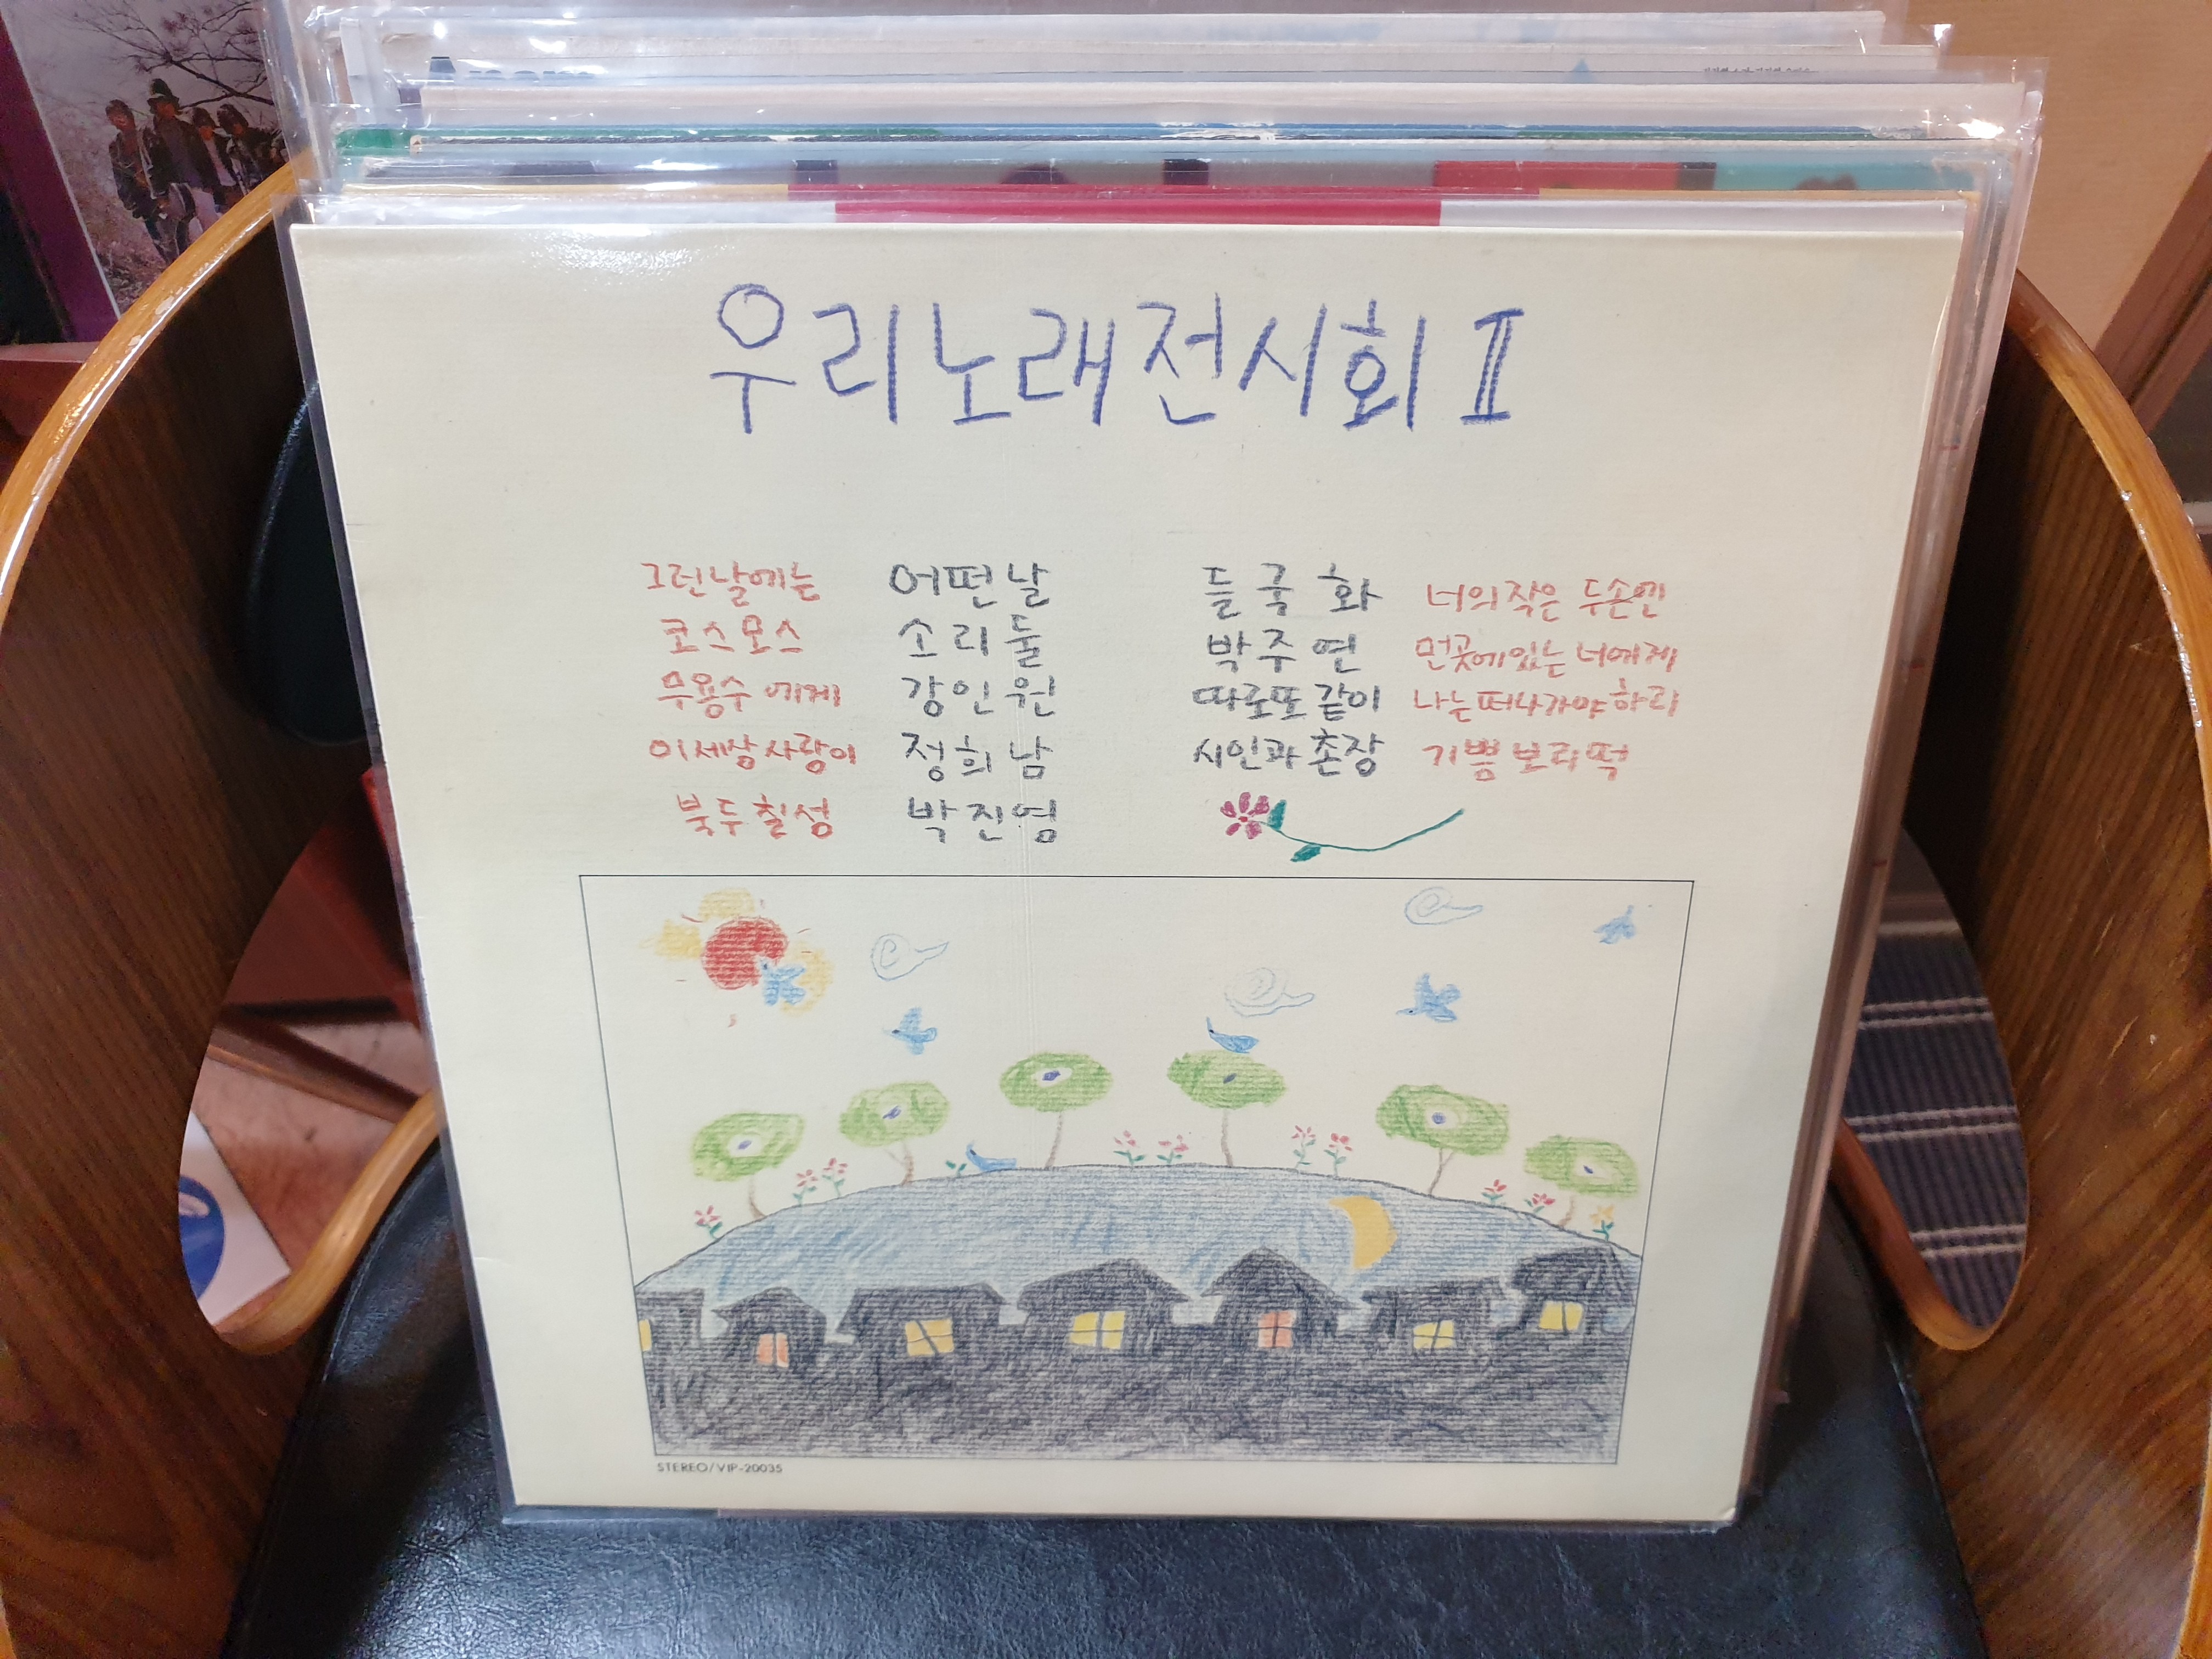 우리노래전시회 II
그런날에는 어떤날
코스모스 소리둘
무용수에게 강인원
이세상사랑이 정희남
북두칠성 박진영
들국화 너의작은 두손엔
박주연 먼곳에있는 너에게
따로또같이 나는떠나가야하리
시인과촌장 기쁨보리떡
STEREO/VIP-20035